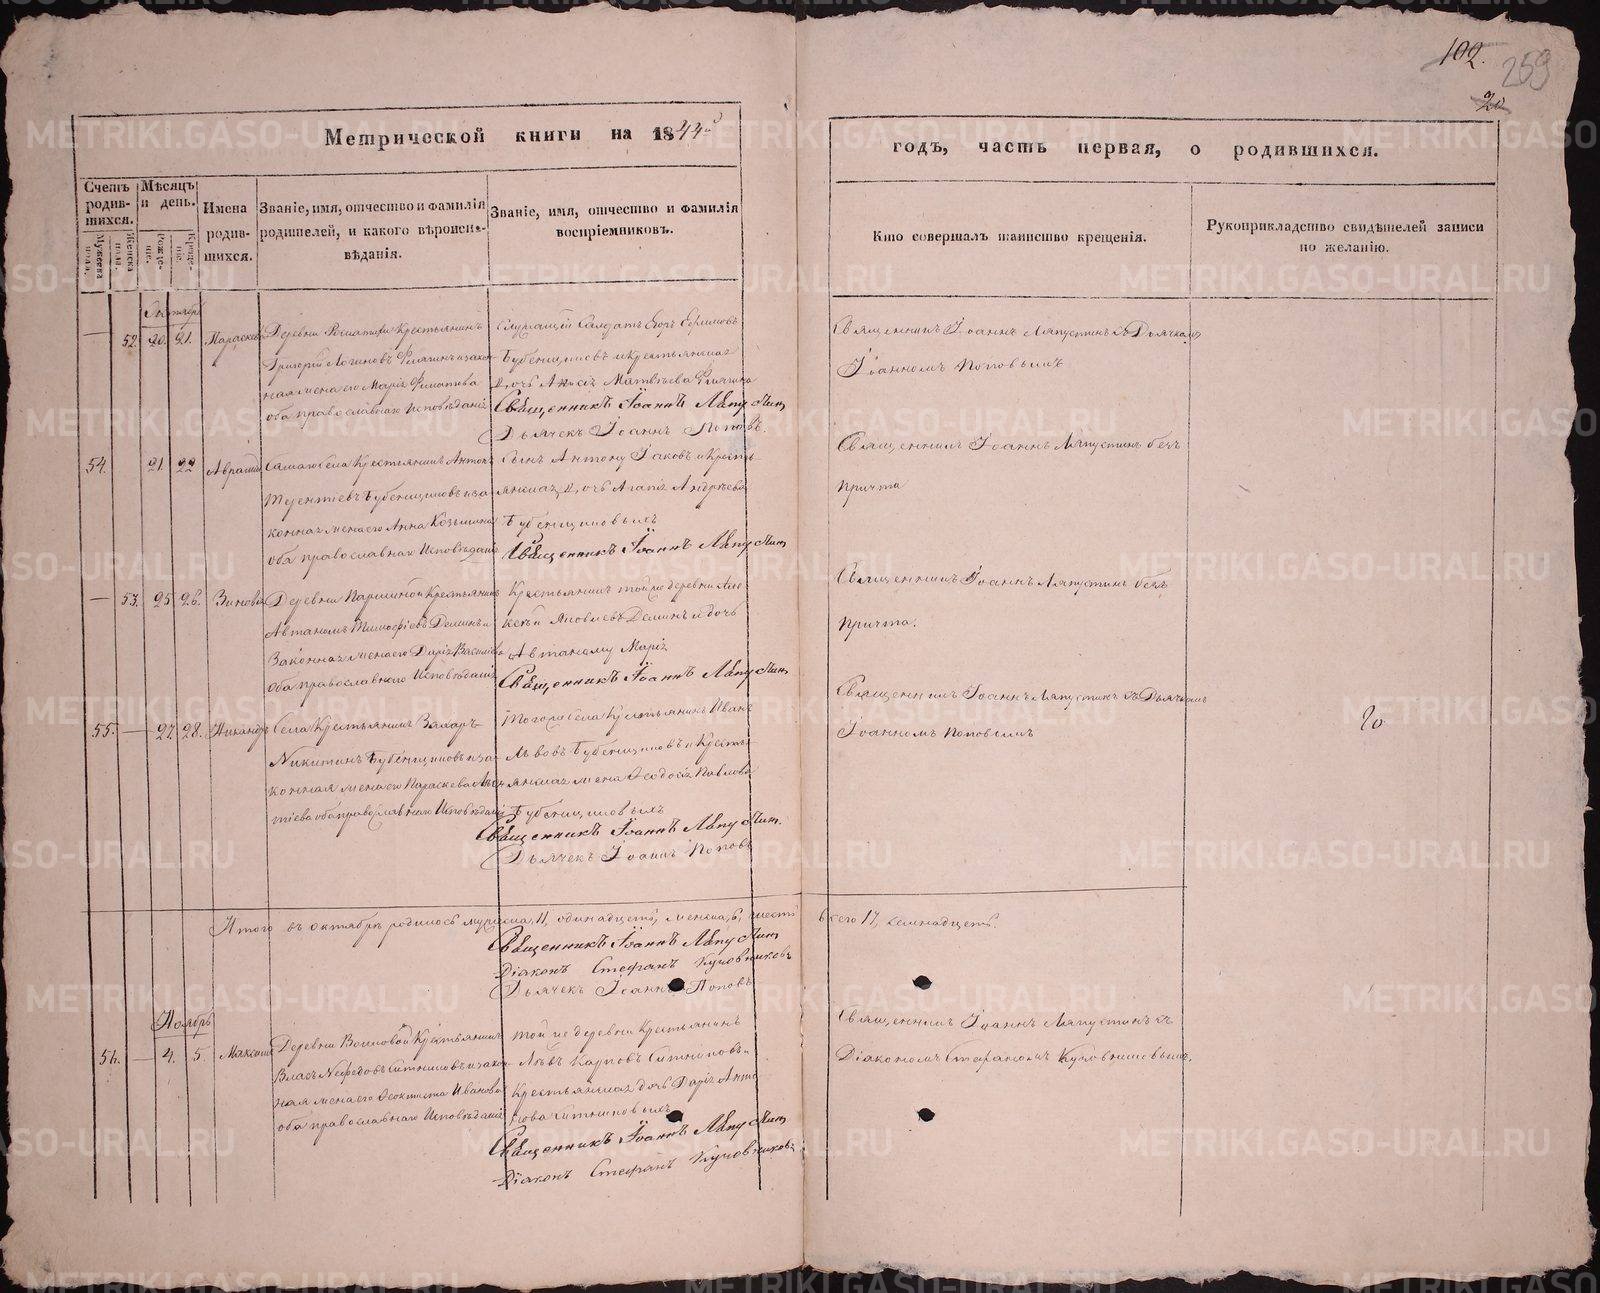 102.
259
20
Метрической книги на 1844й
годъ, часть первая, о родившихся.
Счетъ родив-шихся.
Мѣсяцъ и день.
Имена родив-шихся.
Званіе, имя, отчество и фамилія родителей, и какого вѣроиспо-вѣданія.
Званіе, имя, отчество и фамилія воспріемниковъ.
Кто совершалъ таинство крещенія.
Рукоприкладство свидѣтелей записи по желанію.
Мужеска пола.
Женска пола.
Рожде-ніе.
Креще-ніе.
Октябрь
52. 20. 21. Параскева
Деревни Крестьянинъ
Григорій Логиновъ и закон
ная жена его Марія Филатова
оба православнаго Исповѣданія
Служащій Салдатъ Егоръ Ефимовъ
Бубенщиковъ и Крестьянская
Дочь Анисія Матвѣева
Священникъ Іоаннъ Ляпустинъ
Дьячекъ Іоаннъ Поповъ.
Священникъ Іоаннъ Ляпустинъ съ Дьячкомъ
Іоанномъ Поповымъ
54. 21. 22 Авраамій
Самаго села Крестьянинъ Антонъ
Терентіевъ Бубенщиковъ и за
конная жена его Анна Козьмина
оба православнаго Исповѣданія
Сынъ Антону Іаковъ и Кресть
янская Дочь Агапія Андреева
Бубенщиковыхъ
Священникъ Іоаннъ Ляпустинъ
Священникъ Іоаннъ Ляпустинъ безъ
Причта
53. 25 26. Зиновія
Деревни Паршиной Крестьянинъ
Автаномъ Тимофіевъ Деминъ и
Законная жена его Дарія Василіева
Оба православнаго Исповѣданія
Крестьянинъ той же деревни Але
ксѣй Яковлевъ Деминъ и дочь
Автаному Марія
Священникъ Іоаннъ Ляпустинъ
Священникъ Іоаннъ Ляпустинъ безъ
Причта.
55. 27. 28. Никандръ
Села Крестьянинъ Захаръ
Никитинъ Бубенщиковъ и за
конная жена его Параскева
тіева оба православнаго Исповѣданія
Тогоже села Крестьянинъ Иванъ
Львовъ Бубенщиковъ и Кресть
янская жена Ѳеодосія Павлова
Бубенщиковыхъ
Священникъ Іоаннъ Ляпустинъ.
Дьячекъ Іоаннъ Поповъ
Священникъ Іоаннъ Ляпустинъ съ Дьячкомъ
Іоанномъ Поповымъ
20
Итого въ октябрѣ родилось мужеска, 11, одинадцеть, женска, 6, шесть
всего 17, семнадцеть.
Священникъ Іоаннъ Ляпустинъ
Діаконъ Стефанъ Кузовниковъ
Дьячекъ Іоаннъ Поповъ
Ноябрь
56. 4. 5. Максимъ
Деревни Воиновой Крестьянинъ
Власъ Нефедовъ Ситниковъ и закон
ная жена его Ѳеоктиста Иванова
оба православнаго Исповѣданія
Той же деревни Крестьянинъ
Левъ Карповъ Ситниковъ и
Крестьянская дочь Дарія Анто
нова Ситниковыхъ
Священникъ Іоаннъ Ляпустинъ
Діаконъ Стефанъ Кузовниковъ
Священникъ Іоаннъ Ляпустинъ съ
Діакономъ Стефаномъ Кузовниковымъ.
METRIKI.GASO-URAL.RU